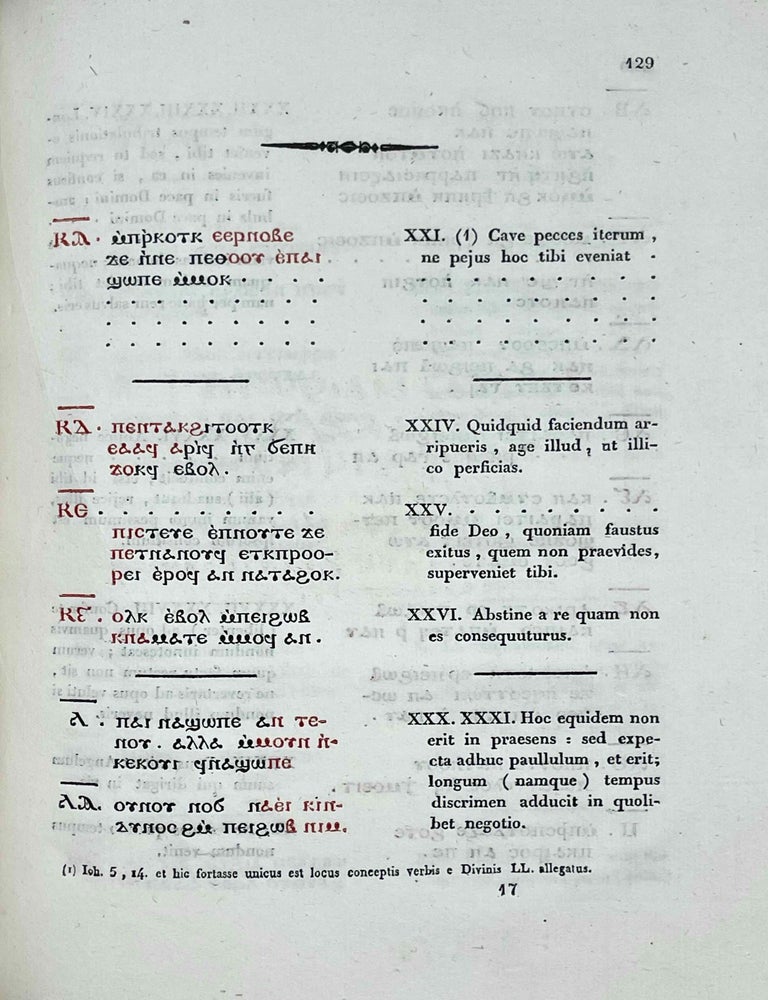 129
ⲕ︦ⲁ︦ · ⲙ̀ⲡⲣ̀ⲕⲟⲧⲕ ⲉⲉⲣⲛⲟⲃⲉ
ϫⲉ ⲛ̀ⲛⲉ ⲡⲉⲑⲟⲟⲩ ⲉ̀ⲡⲁⲓ . . .
ϣⲱⲡⲉ ⲙ̀ⲙⲟⲕ · · · ·
XXI. (1) Cave pecces iterum ,
ne pejus hoc tibi eveniat ·
ⲕ︦ⲇ︦ · ⲡⲉⲛⲧⲁⲕϩⲓⲧⲟⲟⲧⲕ
ⲉⲁⲁϥ ⲁⲣⲓϥ ϩⲛ̀ ⲟⲩ ϭⲉⲡⲏ
ϫⲟⲕϥ ⲉⲃⲟⲗ .
XXIV. Quidquid faciendum ar-
ripueris , age illud , ut illi-
co perficias.
ⲕ︦ⲉ︦ · · · · · · · · ·
ⲡⲓⲥⲧⲉⲩⲉ ⲉ̀ⲡⲛⲟⲩⲧⲉ ϫⲉ
ⲡⲉⲧⲛⲁⲛⲟⲩϥ ⲉⲧⲕⲡⲣⲟⲟ-
ⲣⲉⲓ ⲉ̀ⲣⲟϥ ⲁⲛ ⲛⲁⲧⲁϩⲟⲕ.
XXV. · · · · · · · ·
fide Deo , quoniam faustus
exitus , quem non praevides,
superveniet tibi.
ⲕ︦ⲋ︦ . ⲟⲗⲕ ⲉ̀ⲃⲟⲗ ⲙ̀ⲡⲉⲓϩⲱⲃ
ⲕⲛⲁⲙⲁⲧⲉ ⲙ̀ⲙⲟϥ ⲁⲛ .
XXVI. Abstine a re quam non
es consequuturus.
ⲗ︦ · ⲡⲁⲓ ⲛⲁϣⲱⲡⲉ ⲁⲛ ⲧⲉ-
ⲛⲟⲩ . ⲁⲗⲗⲁ ⲙ̀ⲙⲟⲩⲛ ⲛ̀-
ⲕⲉⲕⲟⲩⲓ ϥⲛⲁϣⲱⲡⲉ
ⲗ︦ⲁ︦. ⲟⲩⲛⲟⲩ ⲛⲟϭ ⲛⲁⲉⲓ ⲕⲓⲛ-
ⲇⲩⲛⲟⲥ ϩⲙ̀ ⲡⲉⲓϩⲱⲃ ⲛⲓⲙ.
XXX. XXXI. Hoc equidem non
erit in praesens : sed expe-
cta adhuc paullulum , et erit;
longum ( namque ) tempus
discrimen adducit in quoli-
bet negotio.
(1) Ioh. 5 , 14. et hic fortasse unicus est locus conceptis verbis e Divinis LL. allegatus.
17